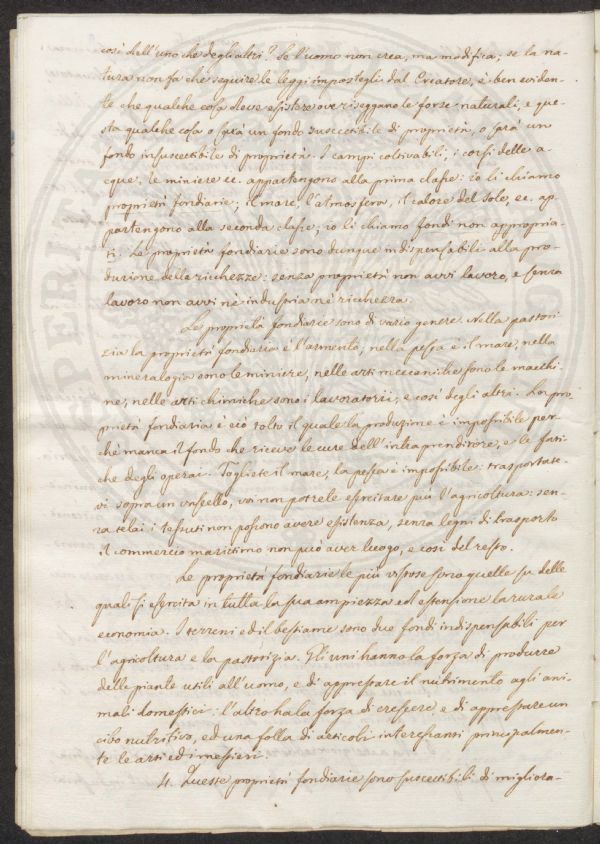 così dell'uno che degli altri? Se l'uomo non crea, ma modifica; se la na-
tura non fa che seguire le leggi impostegli dal Creatore, è ben eviden-
te che qualche cosa deve esistere ove riseggano le forze naturali, e que-
sta qualche cosa o sarà un fondo suscettibile di proprietà, o sarà un
fondo insuscettibile di proprietà. I campi coltivabili, i corsi delle a-
cque, le miniere ec. appartengono alla prima classe: io li chiamo
proprietà fondiarie; il mare, l'atmosfera, il calore del sole, ec. ap-
partengono alla seconda classe; io li chiamo fondi non appropria-
ti. Le proprietà fondiarie sono dunque indispensabili alla pro-
duzione delle ricchezze: senza proprietà non avvi lavoro, e senza
lavoro non avvi nè industria nè ricchezza.
Le proprietà fondiarie sono di vario genere. Nella pastori-
zia la proprietà fondiaria è l'armento; nella pesca è il mare; nella
mineralogia sono le miniere; nelle arti meccaniche sono le macchi-
ne; nelle arti chimiche sono i lavoratorii; e così degli altri. La pro-
prietà fondiaria è ciò tolto il quale la produzione è impossibile per-
chè manca il fondo che riceve le cure dell'intraprenditore, e le fati-
che degli operai. Togliete il mare, la pesca è impossibile: trasportate-
vi sopra un vascello, voi non potrete esercitare più l'agricoltura: sen-
za telai i tessuti non possono avere esistenza, senza legni di trasporto
il commercio marittimo non può aver luogo, e così del resto.
Le proprietà fondiarie le più vistose sono quelle su delle
quali si esercita in tutta la sua ampiezza ed estensione la rurale
economia. I terreni ed il bestiame sono due fondi indispensabili per
l'agricoltura e la pastorizia. Gli uni hanno la forza di produrre
delle piante utili all'uomo, e di apprestare il nutrimento agli ani-
mali domestici: l'altro ha la forza di crescere e di apprestare un
cibo nutritivo, ed una folla di articoli interessanti principalmen-
te le arti ed i mestieri.
4. Queste proprietà fondiarie sono suscettibili di migliora-